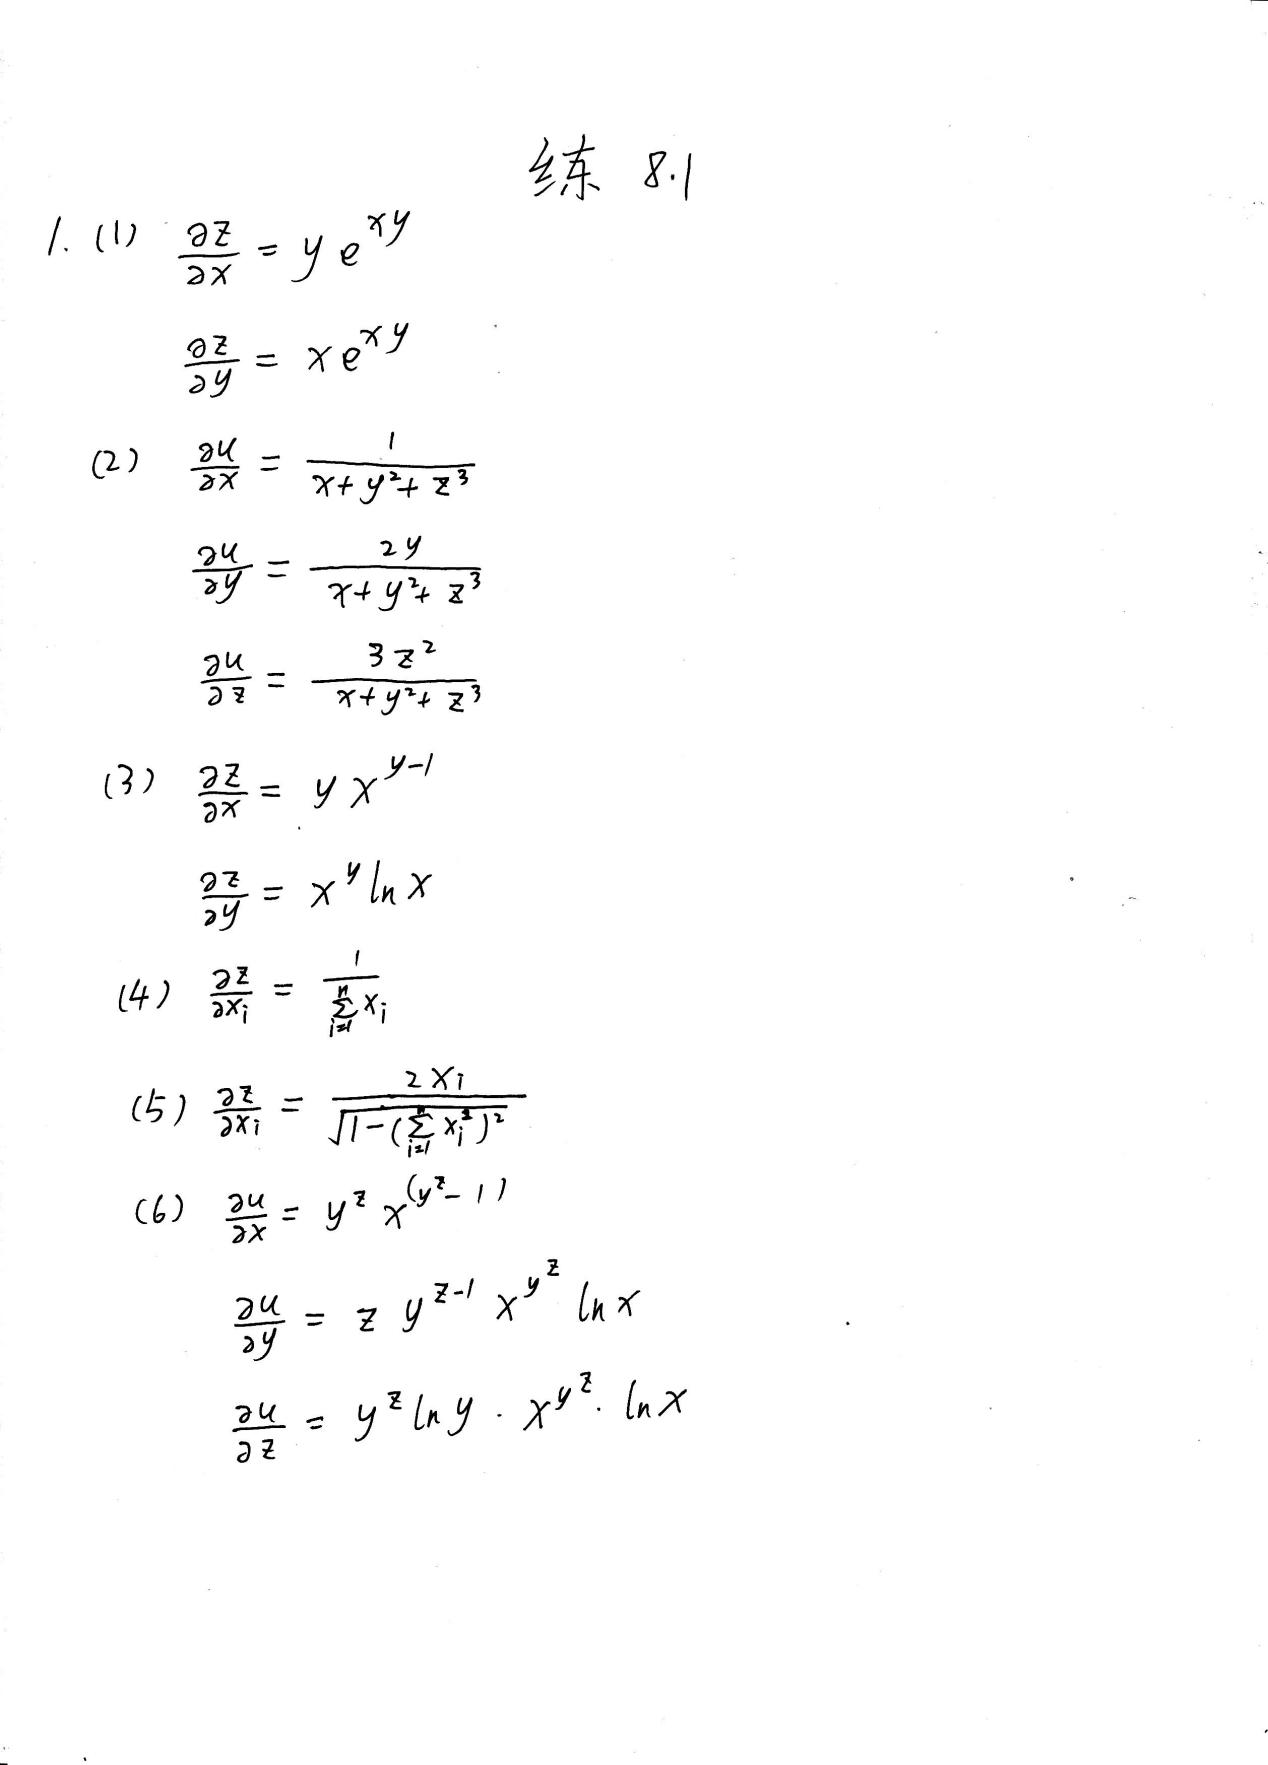 练 8.1
1. (1) ∂z/∂x = y e^{xy}
∂z/∂y = x e^{xy}
(2) ∂u/∂x = 1/(x+y²+z³)
∂u/∂y = 2y/(x+y²+z³)
∂u/∂z = 3z²/(x+y²+z³)
(3) ∂z/∂x = y x^{y-1}
∂z/∂y = x^y ln x
(4) ∂z/∂x_i = 1/(∑_{i=1}^{n} x_i)
(5) ∂z/∂x_i = 2x_i/√(1-(∑_{i=1}^{n} x_i²)²)
(6) ∂u/∂x = y^z x^{(y^z-1)}
∂u/∂y = z y^{z-1} x^{y^z} ln x
∂u/∂z = y^z ln y · x^{y^z} · ln x